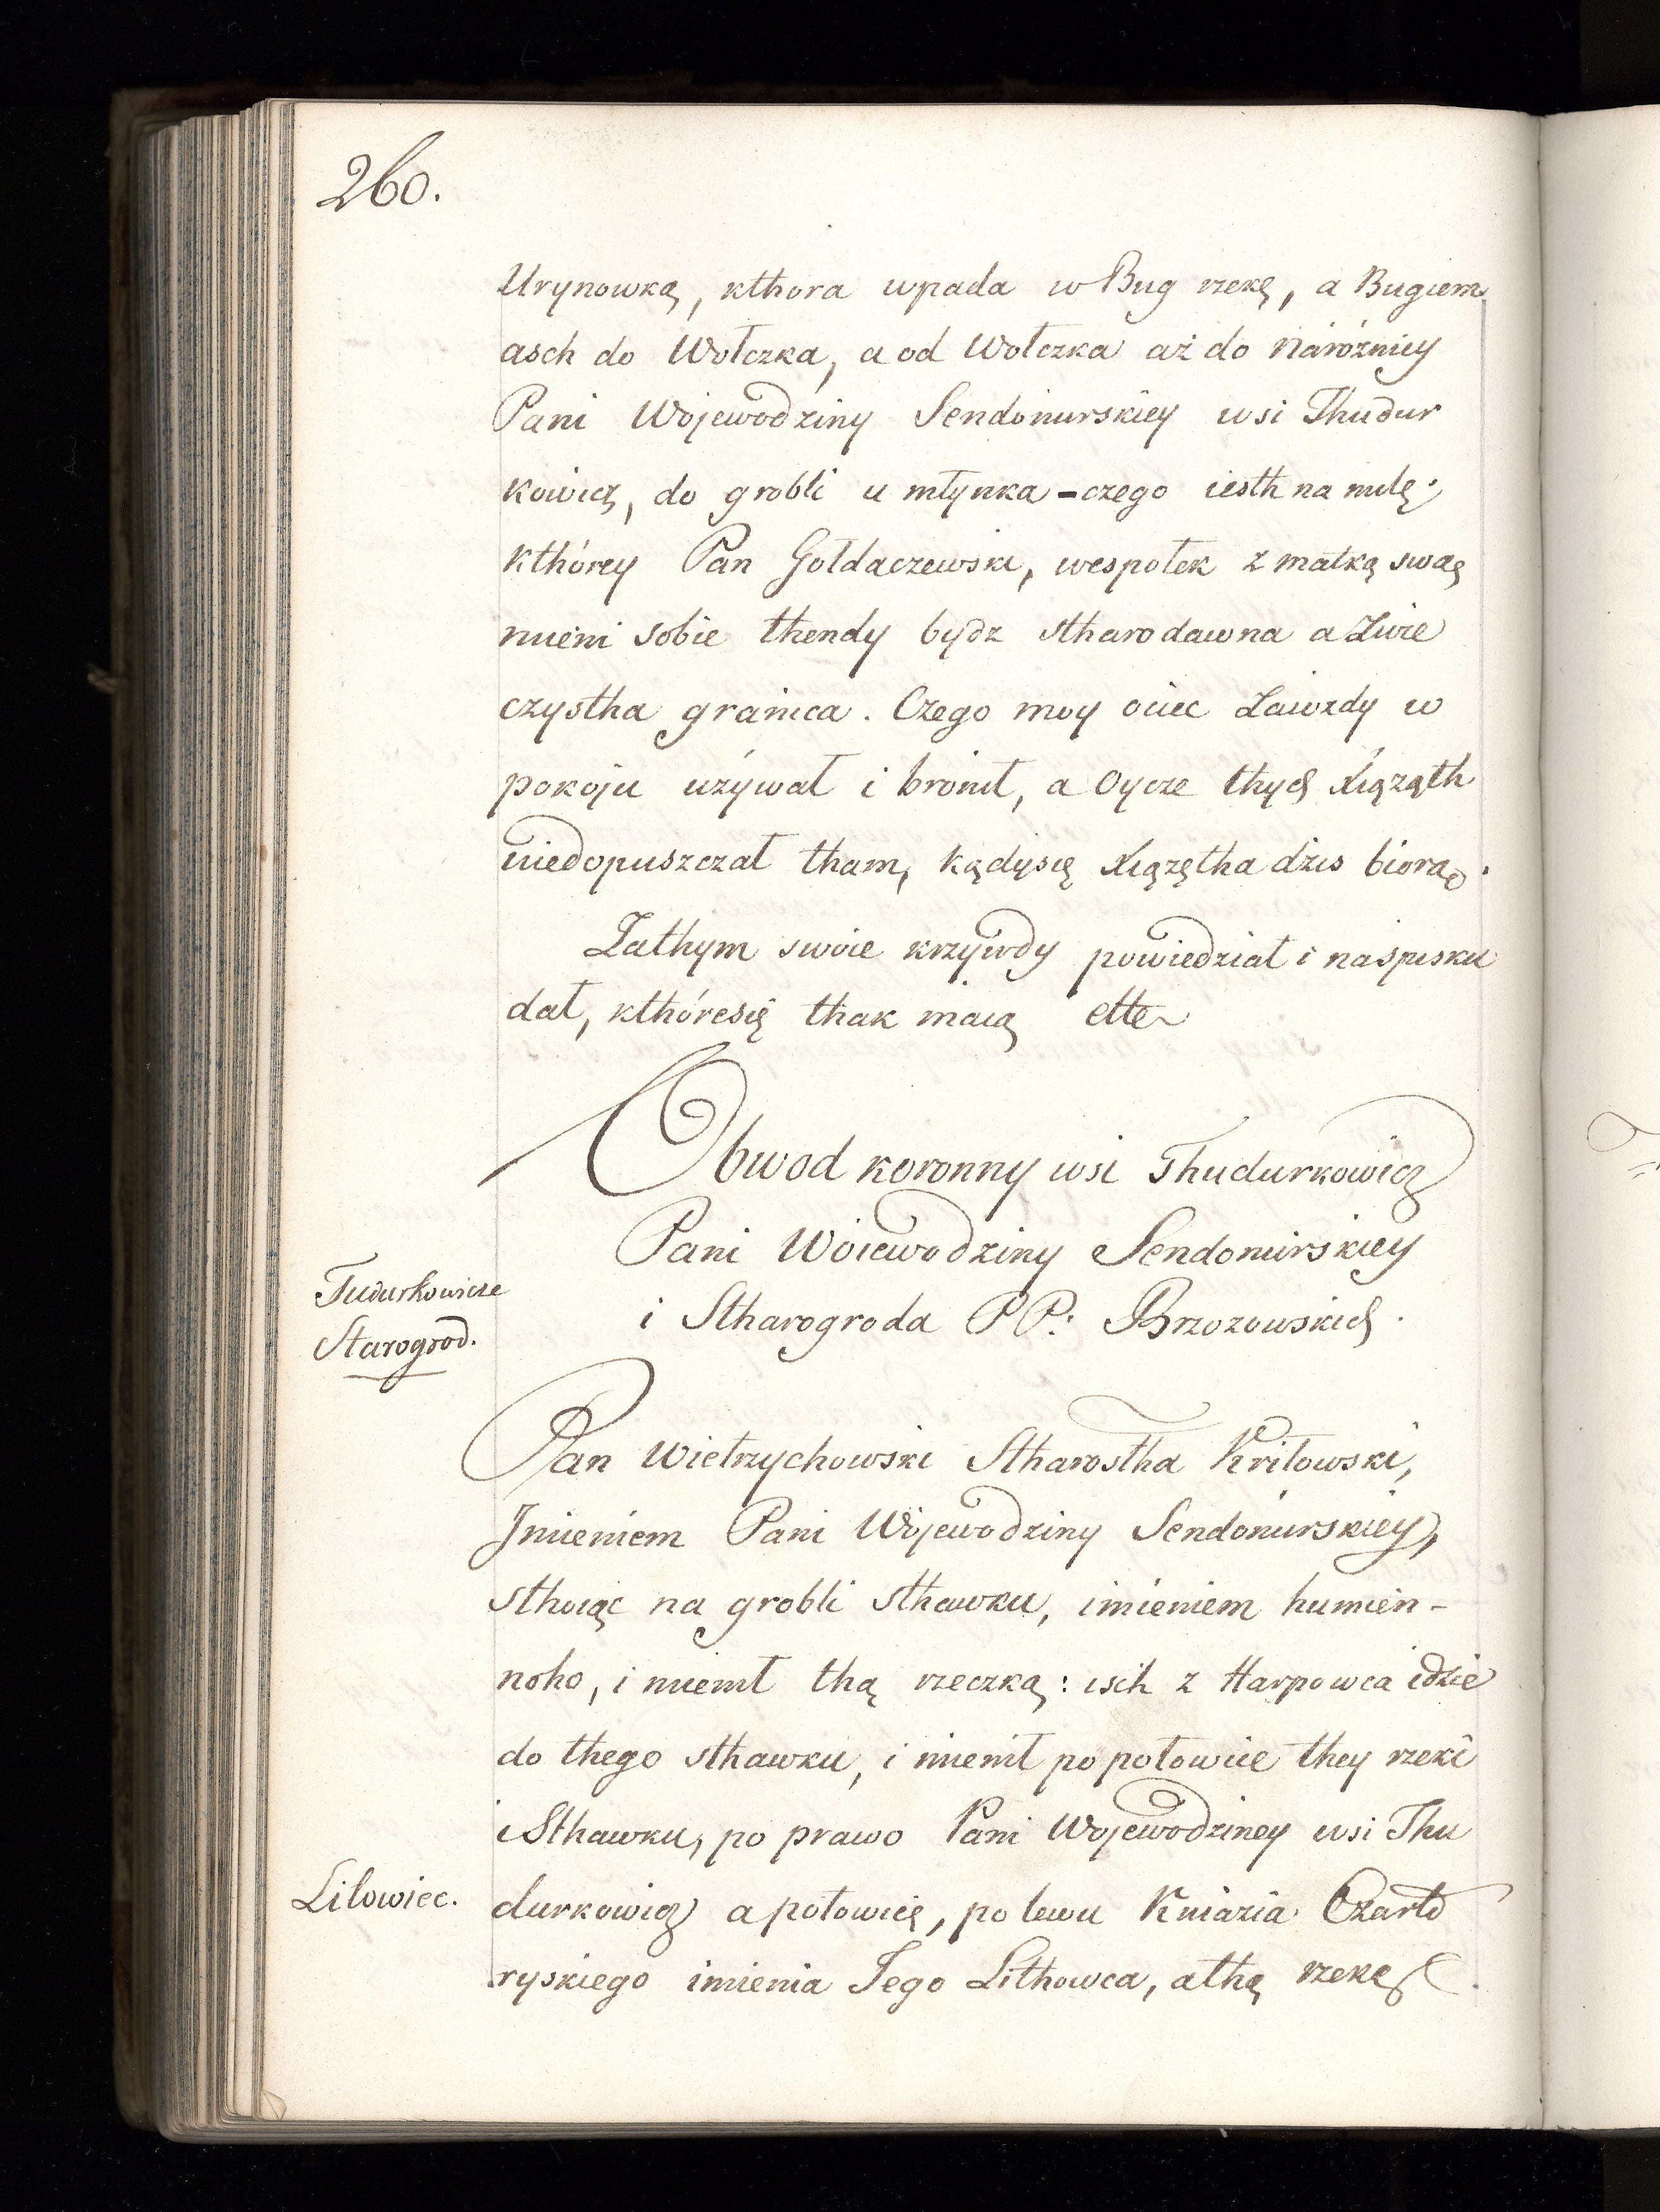 260.
Urynowką, kthora upada w Bug rzekę, a Bugiem
asch do Wołczka, a od Wołczka aż do Naróżnicy
Pani Wojewodziny Sendomirskiey wsi Thudur
kowicz, do grobli u młynka - czego iesth na milę;
kthórey Pan Gołdaczewski, wespołek z matką swąą
mieni sobie thendy bydz stharodawna a Live
czystha granica. Czego moy ociec Zawzdy w
pokoju używał i bronił, a Oycze thych Xiąząth
niedopuszczał tham, kędysię Xiązętha dzis biorą.
Zathym swoie krzywdy powiedział i naspisku
dał, kthóresię thak maią ette
Obwod koronny wsi Thudurkowicz
Pani Woiewodziny Sendomirskiey
i Stharogroda PP: Brzozowskich.
Tudurkowicze
Starogrod.
Pan Wietrzychowski Stharostha Kriłowski,
Jmieniem Pani Wojewodziny Sendomirskiey,
sthoiąc na grobli sthawku, imieniem humien-
noho, i mienił thą rzeczką: isch z Harpowca idzie
do thego sthawku, i mienił po połowicę they rzeki
i Sthawku, po prawo Pani Wojewodziney wsi Thu
Litowiec.
durkowicz a połowicę, po lewu Kniazia Czarto
ryskiego imienia Jego Lithowca, a thą rzeką